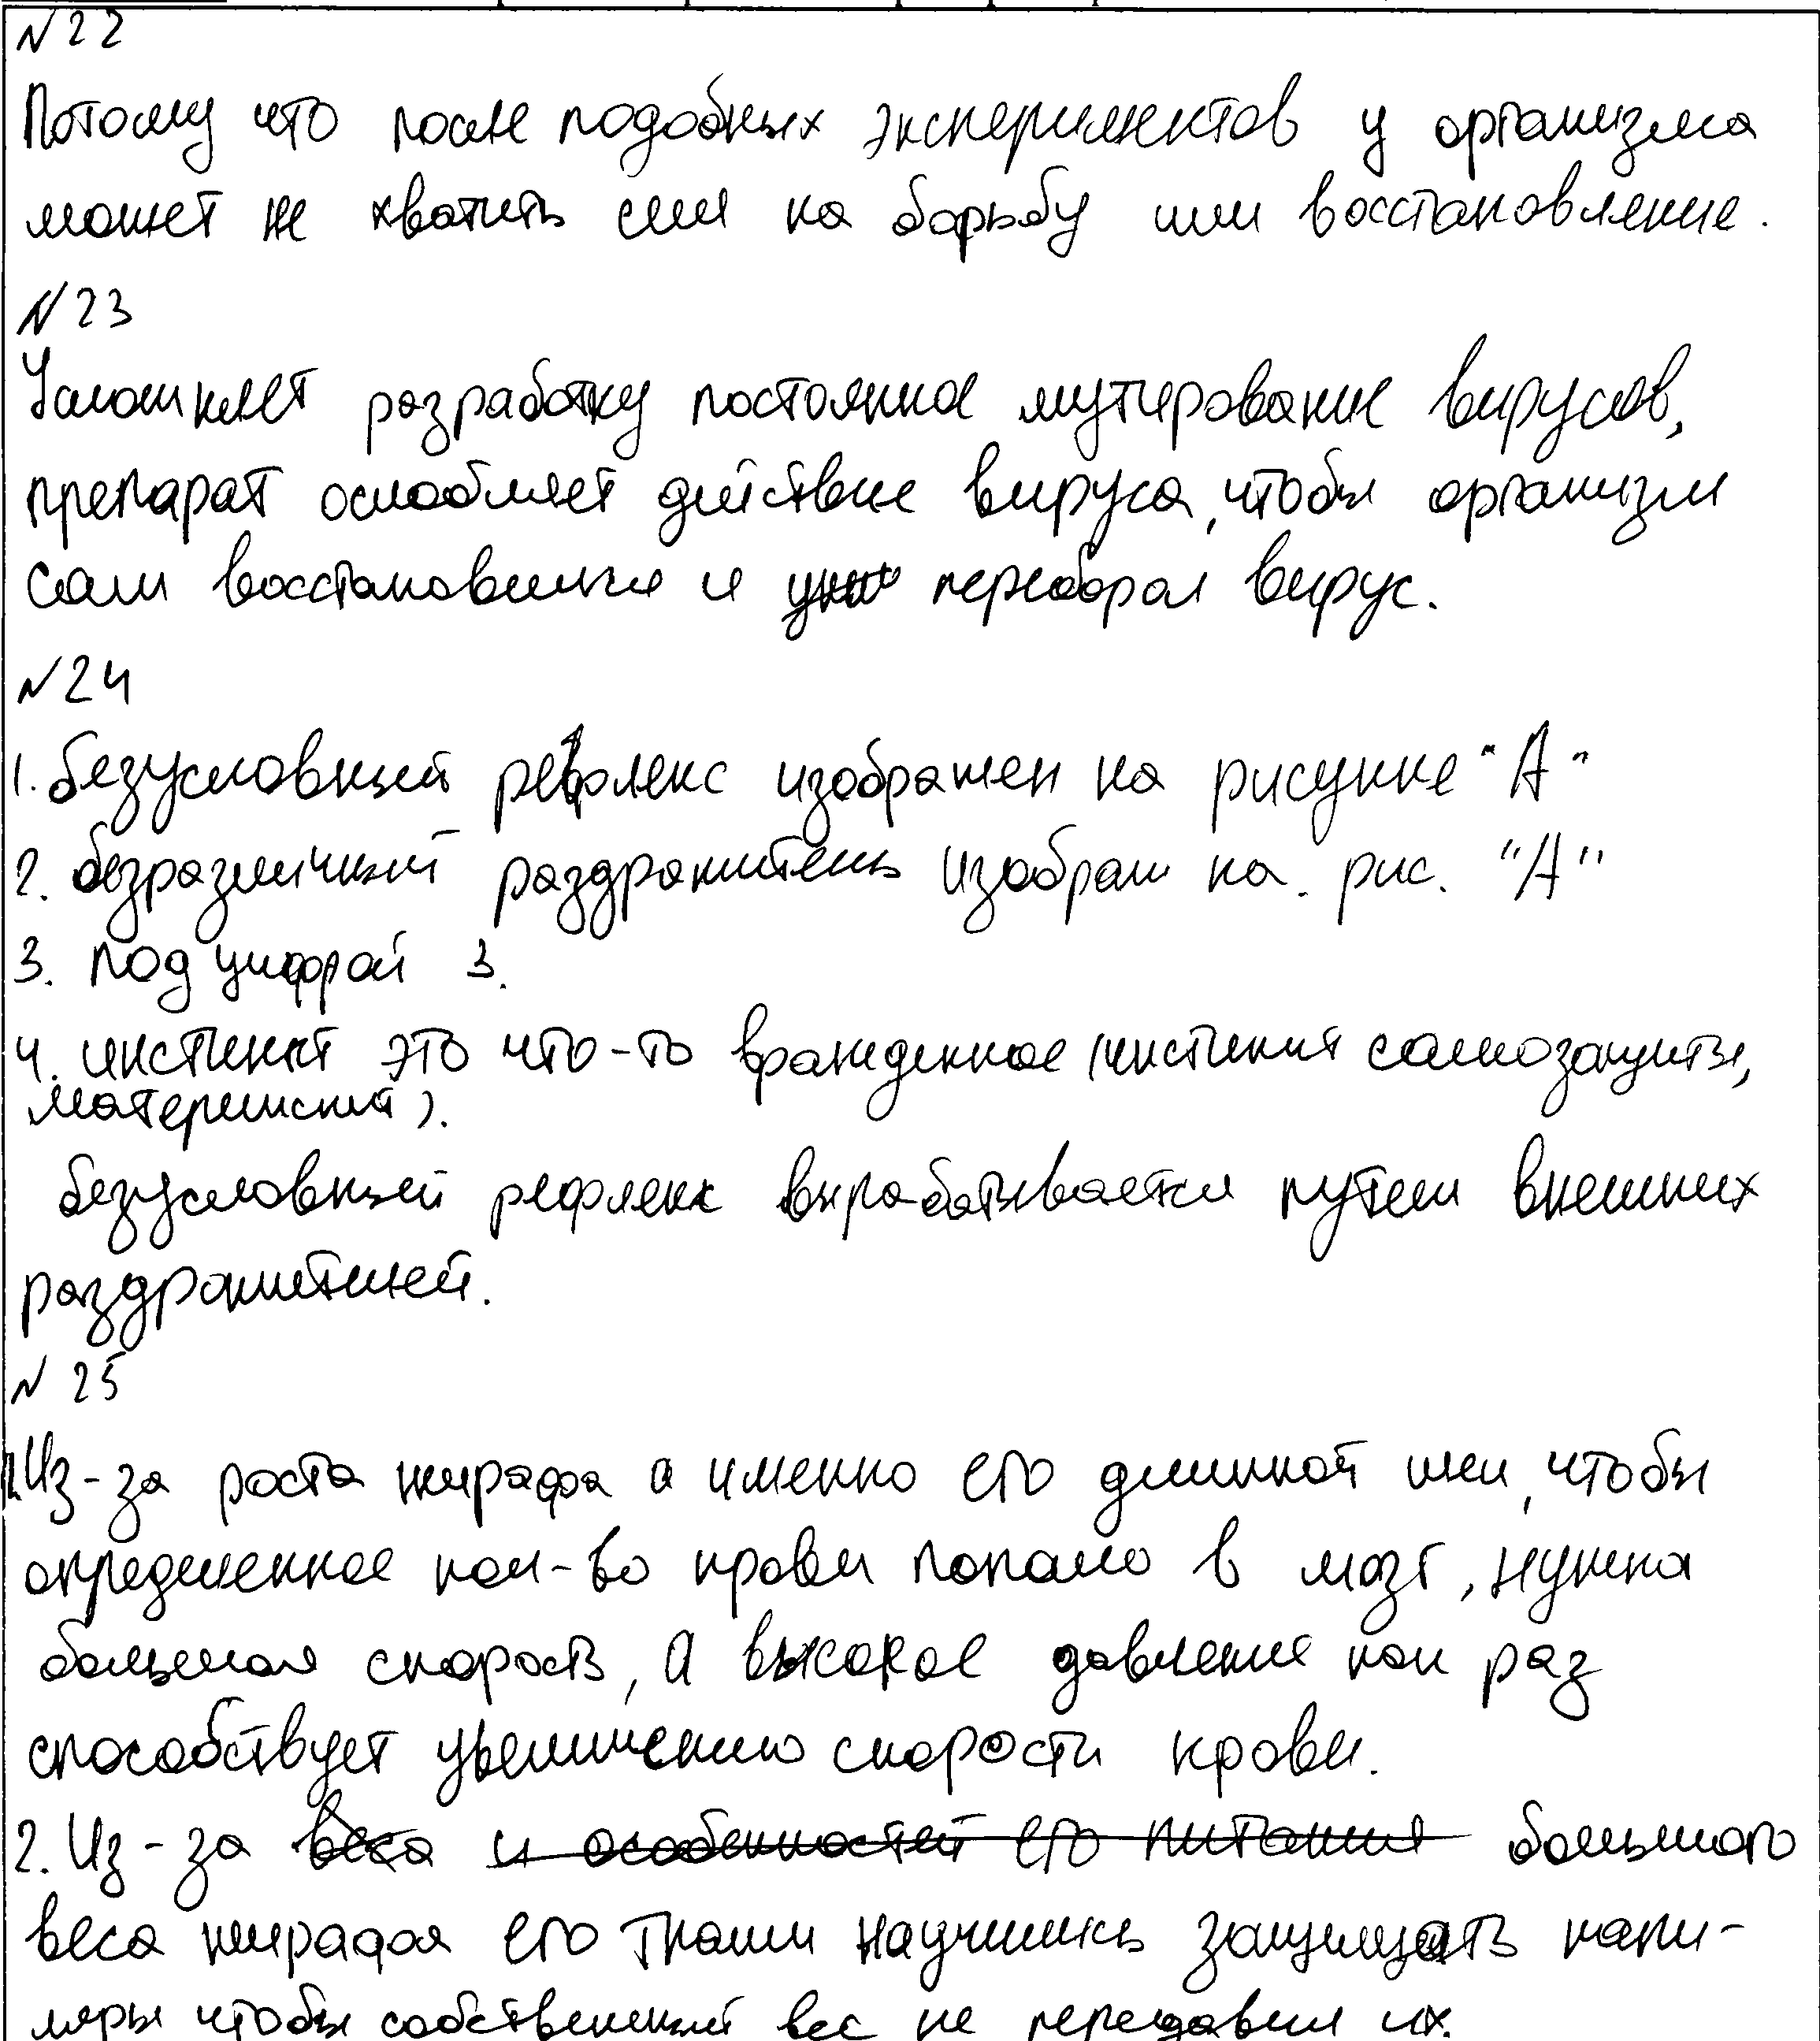 N22
Потому что после подобных экспериментов у организма
может не хватить сил на борьбу или восстановление.
N23
Усложняет разработку постоянное мутирование вирусов,
препарат ослабляет действие вируса, чтобы организм
сам восстановился и переборол вирус.
N24
1. безусловный рефлекс изображен на рисунке "А"
2. безразличный раздражитель изображ на. рис. "А"
3. под цифрой 3.
4. инстинкт это что-то врожденное (инстинкт самозащиты,
материнский).
безусловный рефлекс вырабатывается путем внешних
раздражителей.
N 25
1. Из-за роста жирафа а именно его длинной шеи, чтобы
определенное кол-во крови попало в мозг, нужна
большая скорость, а высокое давление как раз
способствует увеличению скорости крови.
2. Из-за веса и особенностей его питания большого
веса жирафа его ткани научились защищать капи-
ляры чтобы собственный вес не передавил их.